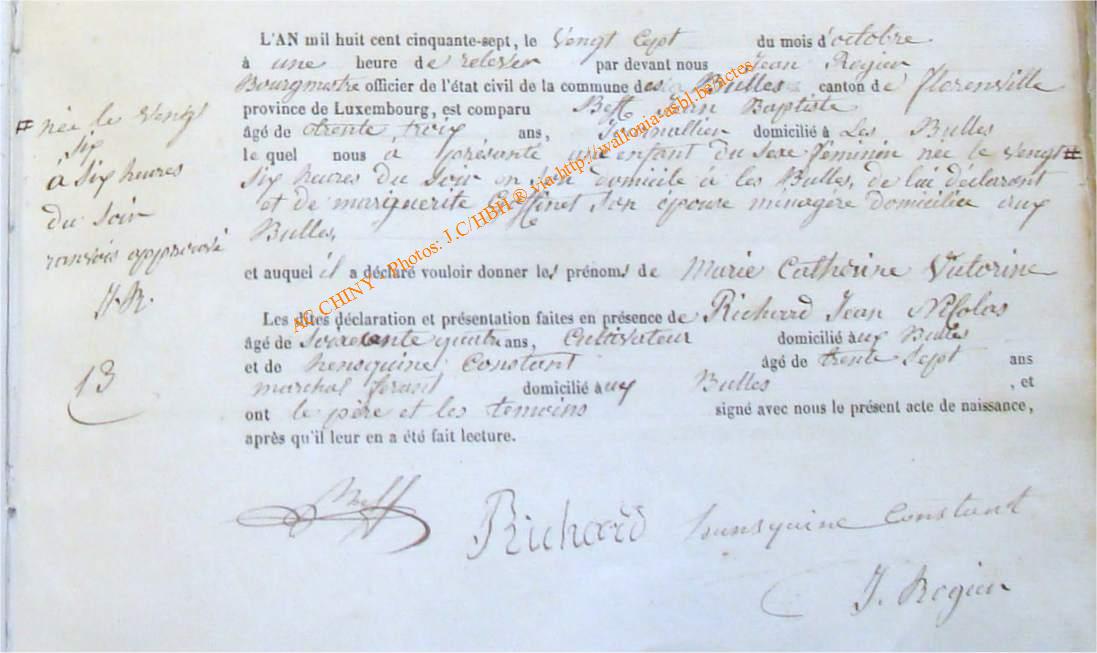 L'AN mil huit cent cinquante-sept, le vengt cept du mois d'octobre
à une heure de relever par devant nous Jean Rogier
Bourgmestre officier de l'état civil de la commune des Bulles, canton de florenville
province de Luxembourg, est comparu Beff Jean Baptiste
âgé de trente trois ans, Journallier domicilié à Les Bulles
le quel nous à présanté une enfant du sexe féminin née le vengt #
six heures du soir en son domicile à les Bulles, de lui déclarant
et de marguerite son épouse ménagère domicilié aux
Bulles,
et auquel il a déclaré vouloir donner les prénoms de Marie Catherine Victorine
Les dites déclaration et présentation faites en présence de Richard Jean Nicolas
âgé de soixante quatre ans, Cultivateur domicilié aux Bulles
et de hensquine Constant âgé de trente sept ans
marchal ferant domicilié aux Bulles , et
ont le père et les temoins signé avec nous le présent acte de naissance,
après qu'il leur en a été fait lecture.
# née le vengt
six
à six heures
du soir
renvois approuvé
J.R.
13
Beff Richard hensquine Constant
J. Rogier
AC CHINY - Photos: J.C/HBH ® via http://wallonia-asbl.be/actes